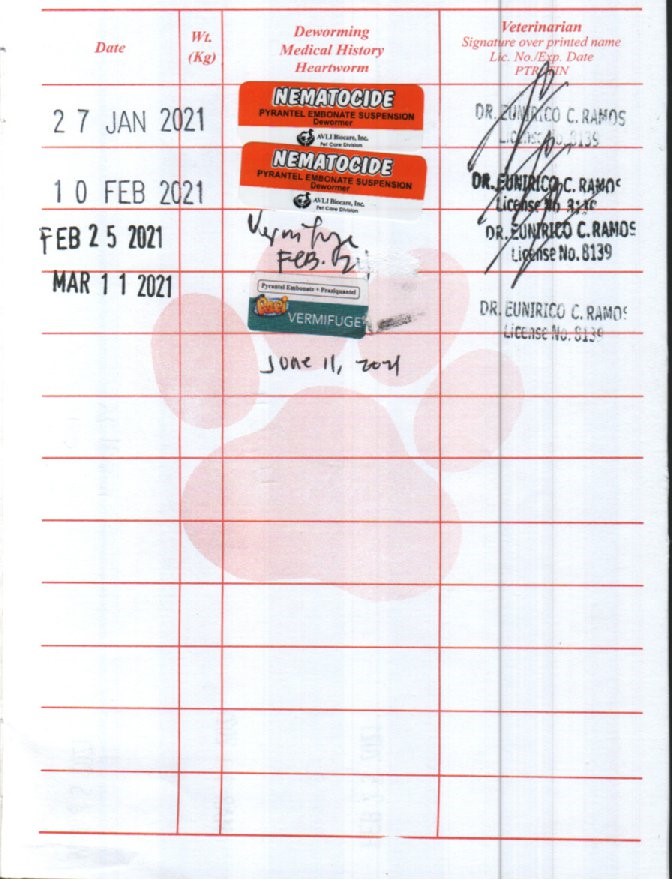 Date
Wt.
(Kg)
Deworming
Medical History
Heartworm
Veterinarian
Signature over printed name
Lic. No./Exp. Date
PTR/TIN
27 JAN 2021
NEMATOCIDE
PYRANTEL EMBONATE SUSPENSION
Dewormer
AVLI Biocare, Inc.
Pet Care Division
DR. EUNIRICO C. RAMOS
License No. 8139
10 FEB 2021
NEMATOCIDE
PYRANTEL EMBONATE SUSPENSION
Dewormer
AVLI Biocare, Inc.
Pet Care Division
DR. EUNIRICO C. RAMOS
License No. 8139
FEB 25 2021
Vermifuge
FEB.
DR. EUNIRICO C. RAMOS
License No. 8139
MAR 11 2021
Pyrantel Embonate + Praziquantel
VERMIFUGE
DR. EUNIRICO C. RAMOS
License No. 8139
June 11, 2021